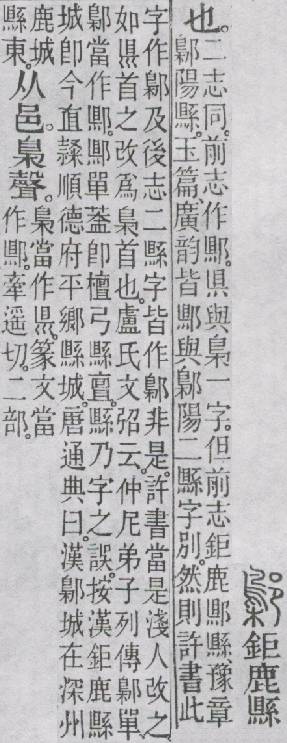 鄡 鉅鹿縣
也。二志同。前志作郻。県與梟一字。但前志鉅鹿郻縣豫章
鄡陽縣。玉篇、廣韵皆郻與鄡陽二縣字別。然則許書此
字作鄡及後志二縣字皆作鄡非是。許書當是淺人改之
如県首之改爲梟首也。盧氏文弨云。仲尼弟子列傳鄡單
鄡當作郻。郻單葢卽檀弓縣亶。縣乃字之誤。按漢鉅鹿縣
城卽今直隷順德府平鄉縣城。唐通典曰。漢鄡城在深州
鹿城
縣東。从邑。梟聲。梟當作県。篆文當
作郻。牽遥切。二部。